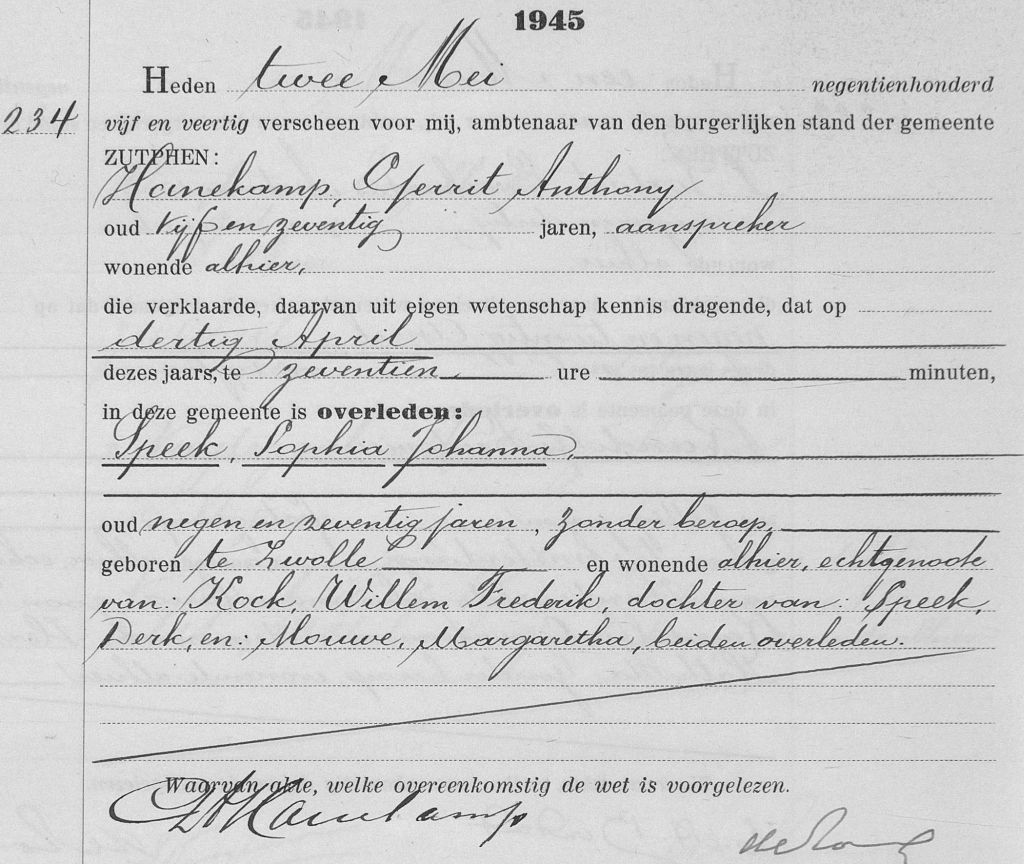 1945
Heden twee Mei negentienhonderd
234 vijf en veertig verscheen voor mij, ambtenaar van den burgerlijken stand der gemeente
ZUTPHEN:
Hanekamp, Gerrit Anthony
oud vijf en zeventig jaren, aanspreker
wonende alhier,
die verklaarde, daarvan uit eigen wetenschap kennis dragende, dat op
dertig April
dezes jaars, te zeventien ure minuten,
in deze gemeente is overleden:
Speek, Sophia Johanna,
oud negen en zeventig jaren, zonder beroep,
geboren te Zwolle en wonende alhier, echtgenoote
van: Kock, Willem Frederik, dochter van: Speek,
Derk, en: Mouwe, Margaretha, beiden overleden.
Waarvan akte, welke overeenkomstig de wet is voorgelezen.
GAHanekamp